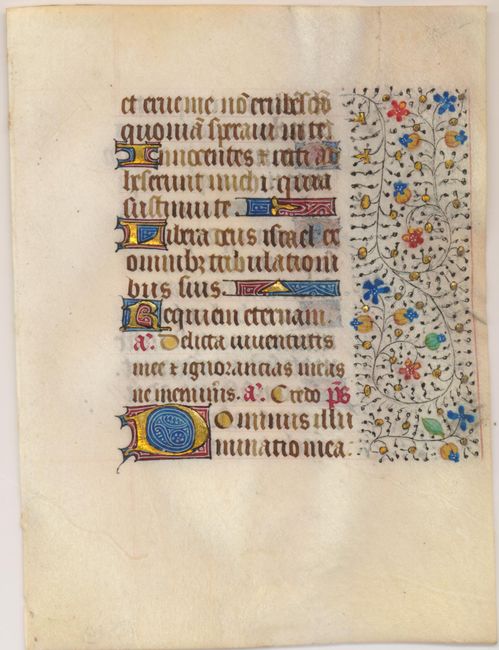 et erue me nō erubescā
quoniā speraui in te
Innocentes ⁊ recti ad
heserunt michi quia
sustinui te
Libera deus israel ex
omnibꝫ tribulationi
bus suis
Requiem eternam
aͣ. Delicta iuuentutis
mee ⁊ ignorancias meas
ne memineris. aͣ. Credo pš
Dominus illu
minatio mea